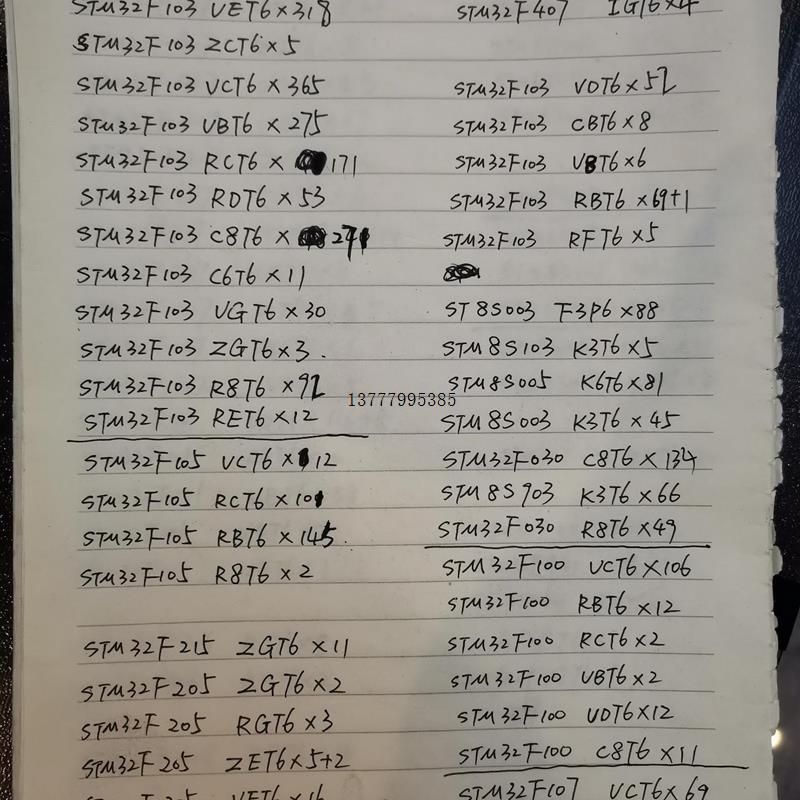 STM32F103 VET6×318
STM32F103 ZCT6×5
STM32F103 VCT6×365
STM32F103 VBT6×275
STM32F103 RCT6×171
STM32F103 RDT6×53
STM32F103 C8T6×271
STM32F103 C6T6×11
STM32F103 VGT6×30
STM32F103 ZGT6×3.
STM32F103 R8T6×92
STM32F103 RET6×12
STM32F105 VCT6×12
STM32F105 RCT6×101
STM32F105 RBT6×145.
STM32F105 R8T6×2
STM32F215 ZGT6×11
STM32F205 ZGT6×2
STM32F205 RGT6×3
STM32F205 ZET6×5+2
VET6×16
STM32F407 IGT6×4
STM32F103 VDT6×52
STM32F103 CBT6×8
STM32F103 V8T6×6
STM32F103 RBT6×69+1
STM32F103 RFT6×5
ST8S003 F3P6×88
STM8S103 K3T6×5
STM8S005 K6T6×81
13777995385
STM8S003 K3T6×45
STM32F030 C8T6×134
STM8S903 K3T6×66
STM32F030 R8T6×49
STM32F100 VCT6×106
STM32F100 RBT6×12
STM32F100 RCT6×2
STM32F100 VBT6×2
STM32F100 VDT6×12
STM32F100 C8T6×11
STM32F107 VCT6×69